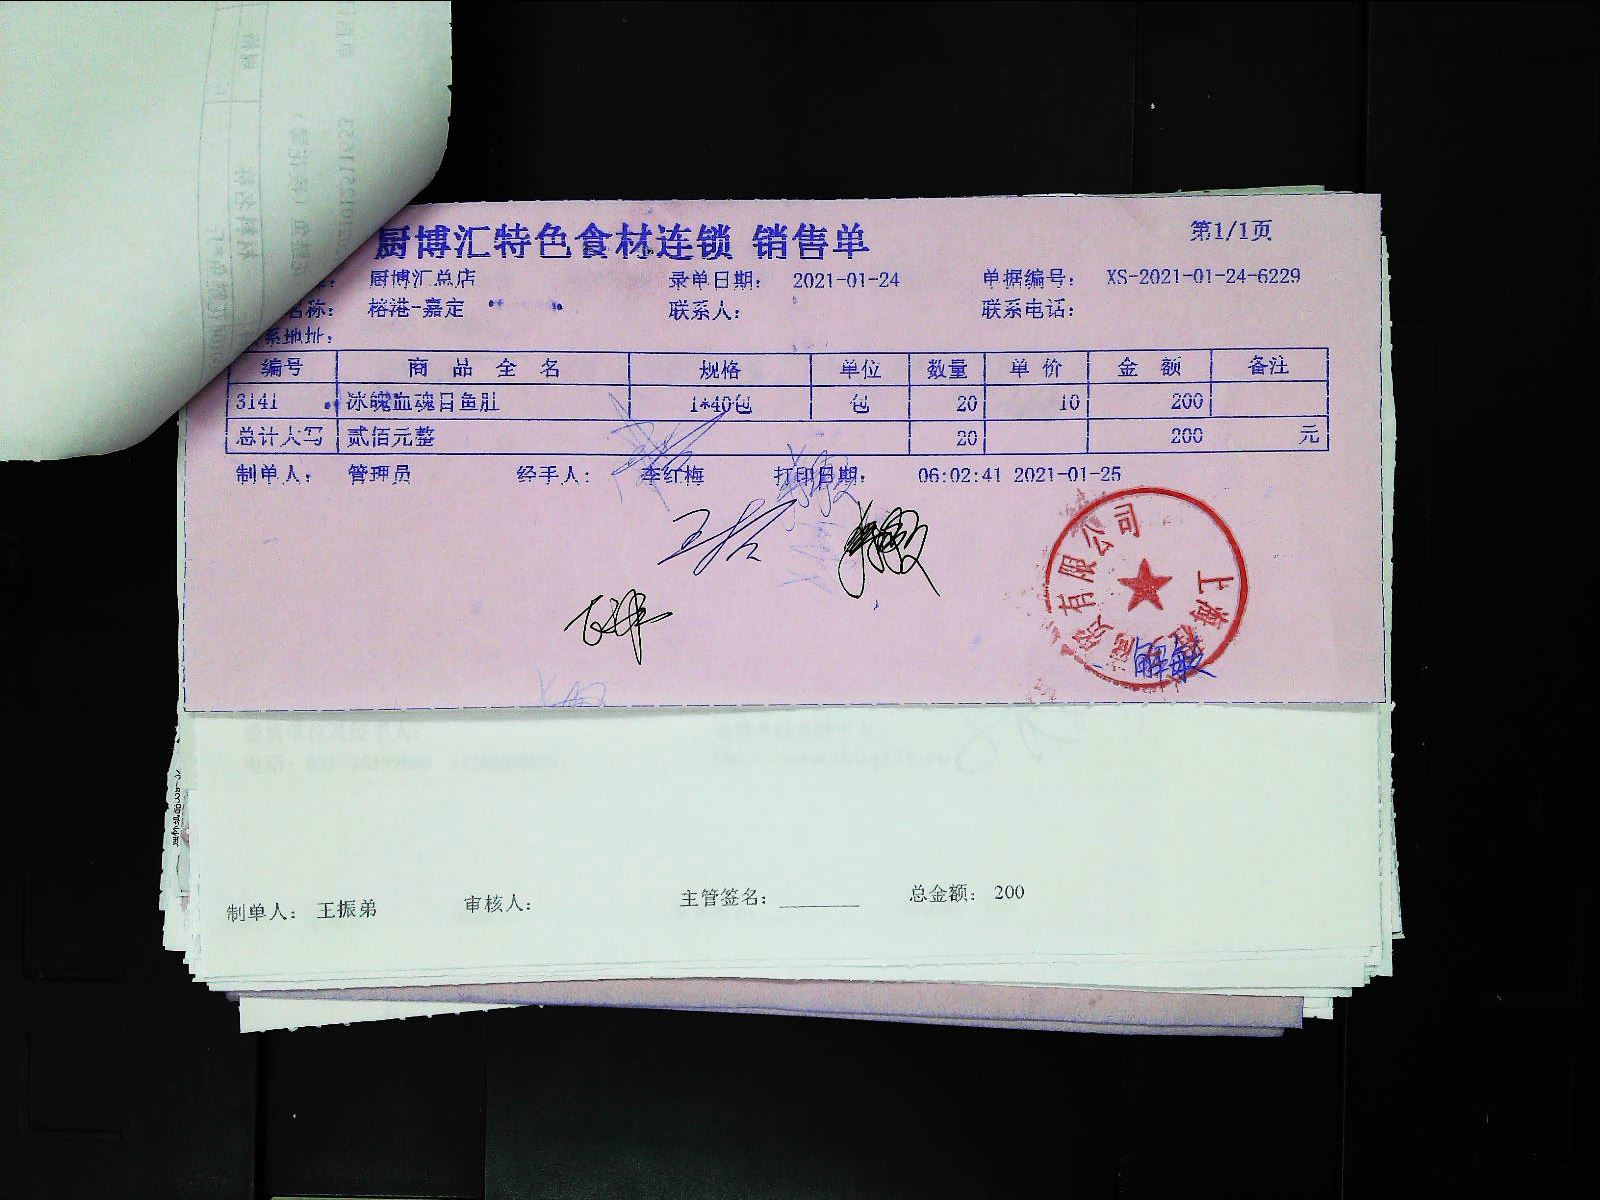 厨博汇特色食材连锁 销售单
第1/1页
厨博汇总店 录单日期： 2021-01-24 单据编号： XS-2021-01-24-6229
名称： 榕港-嘉定 联系人： 联系电话：
系地址：
编号 商品全名 规格 单位 数量 单价 金额 备注
3141 冰魄血魂目鱼肚 1*40包 包 20 10 200
总计大写 贰佰元整 20 200 元
制单人： 管理员 经手人： 李红梅 打印日期： 06:02:41 2021-01-25
上海 贸有限公司
制单人： 王振弟 审核人： 主管签名： 总金额： 200